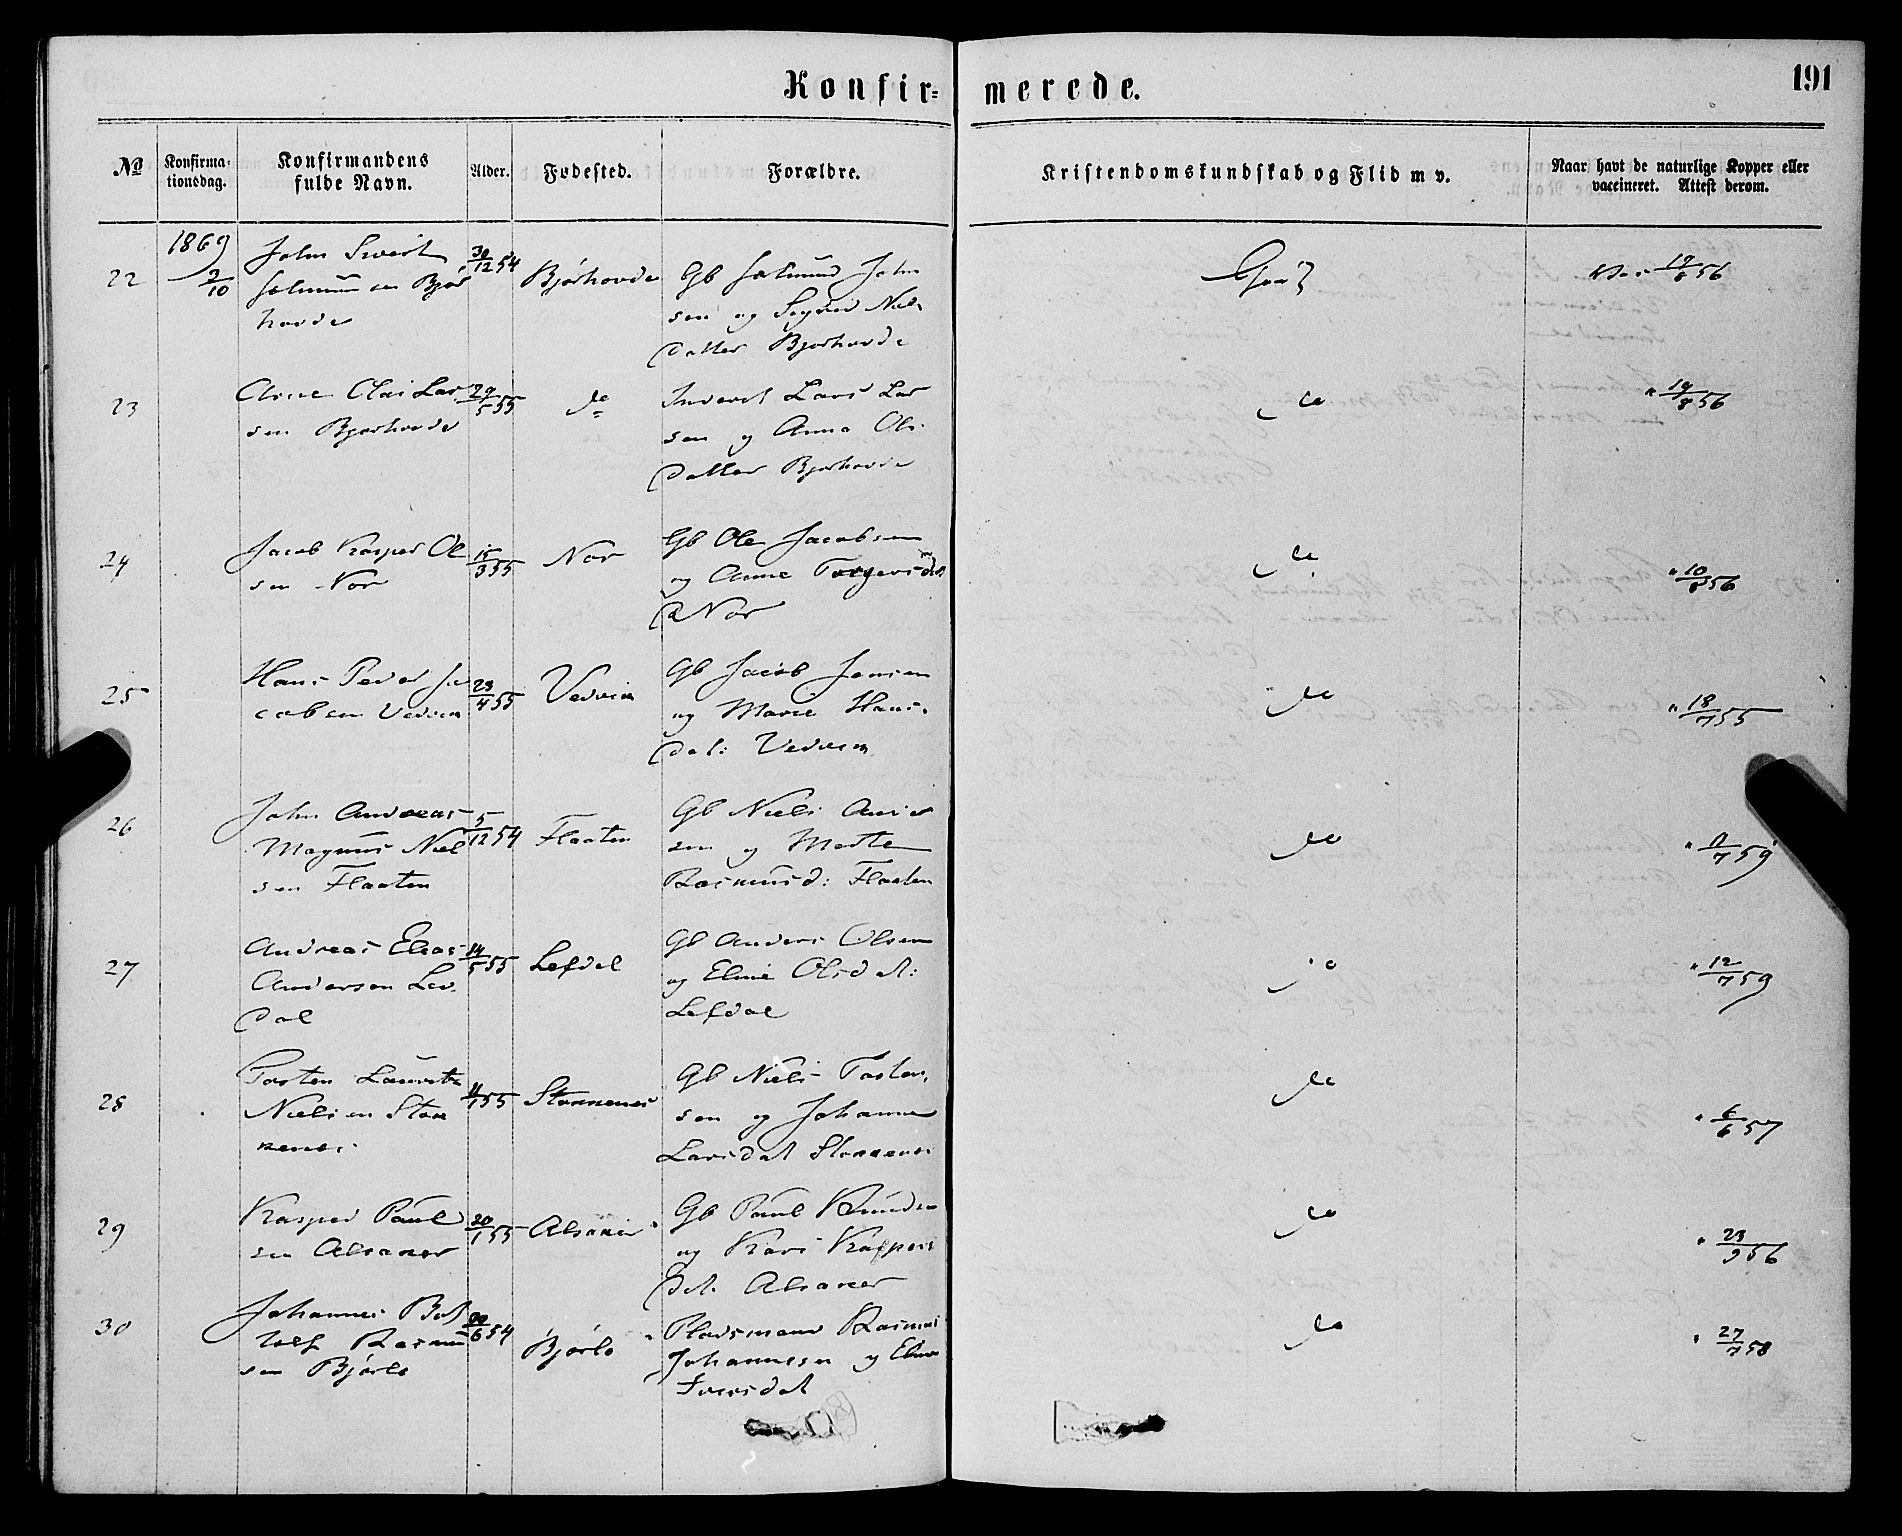 Konfir=merede.
191
No
Konfirma-
tionsdag.
Konfirmandens
fulde Navn.
Alder.
Fødested.
Forældre.
Kristendomskundskab og Flid m v.
Naar havt de naturlige Kopper eller
vaccineret. Attest derom.
22
1869
3/10
John Sivert
Salmunsen Bjør
hovde
30/12 54
Bjørhovde
Gb Salmund John
sen og Sigrid Niels
datter Bjørhovde
God
Vac 19/8 56
23
Arne Olai Lar
sen Bjørhovde
29/5 55
do
Inderst Lars Lar
sen og Anna Ols
datter Bjørhovde
do
" 19/8 56
24
Jacob Kasper Ol
sen Nor
15/3 55
Nor
Gb Ole Jacobsen
og Anne Torgersd
Nor
do
" 10/8 56
25
Hans Peder Ja
cobsen Vedvin
23/4 55
Vedvin
Gb Jacob Jensen
og Marie Hans
dat: Vedvin
do
" 18/7 55
26
John Andreas
Magnus Niel
sen Flaaten
5/12 54
Flaaten
Gb Niels Anders
sen og Mette
Rasmusd: Flaaten
do
" 9/7 59
27
Andreas Elias
Andersen Lev
dal
14/5 55
Lefdal
Gb Anders Olsen
og Eline Olsdat:
Lefdal
do
" 12/7 59
28
Torsten Lauritz
Nielsen Stok
nenes
11/1 55
Stoknenes
Gb Niels Tosten
sen og Johanne
Larsdat
do
" 6/6 57
29
Kasper Paul
sen Alsaker
20/1 55
Alsaker
Gb Paul Knudsen
og Kari Kaspers
dat. Alsaker
do
" 23/9 56
30
Johannes
Rasmus
sen Bjørlo
20/6 54
Bjørlo
Pladsmand Rasmus
Johannesen og Eline
Iversdat
do
" 27/7 58